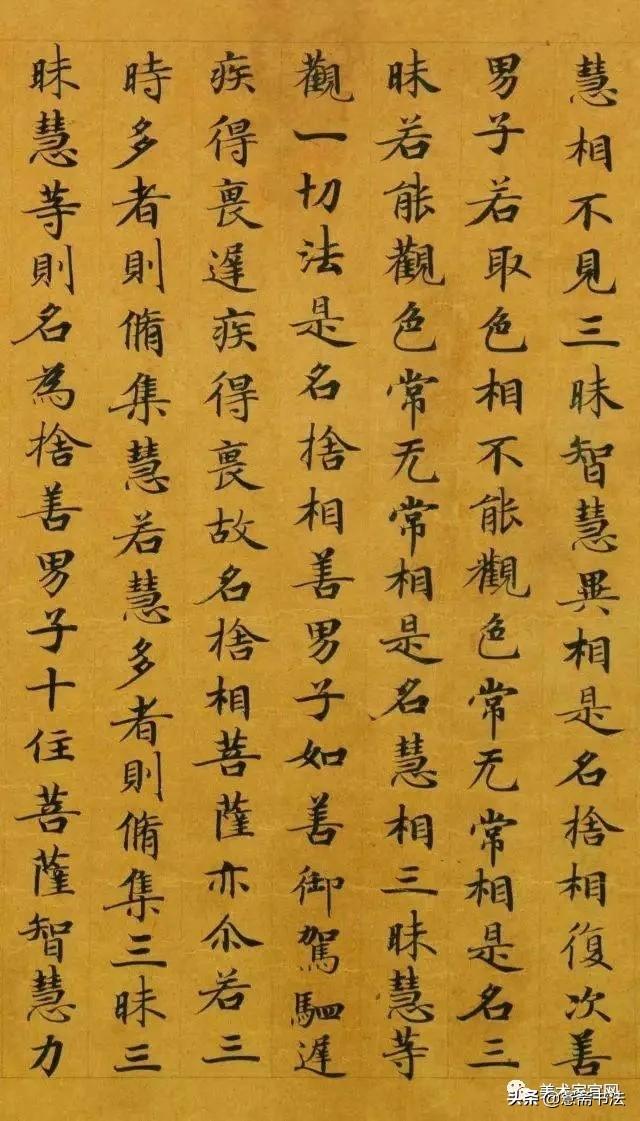 慧相不見三昧智慧異相是名捨相復次善
男子若取色相不能觀色常无常相是名三
昧若能觀色常无常相是名慧相三昧慧等
觀一切法是名捨相善男子如善御駕駟遲
疾得畏遲疾得畏故名捨相菩薩亦尒若三
時多者則脩集慧若慧多者則脩集三昧三
昧慧等則名為捨善男子十住菩薩智慧力
美术家官网
头条 斋书法